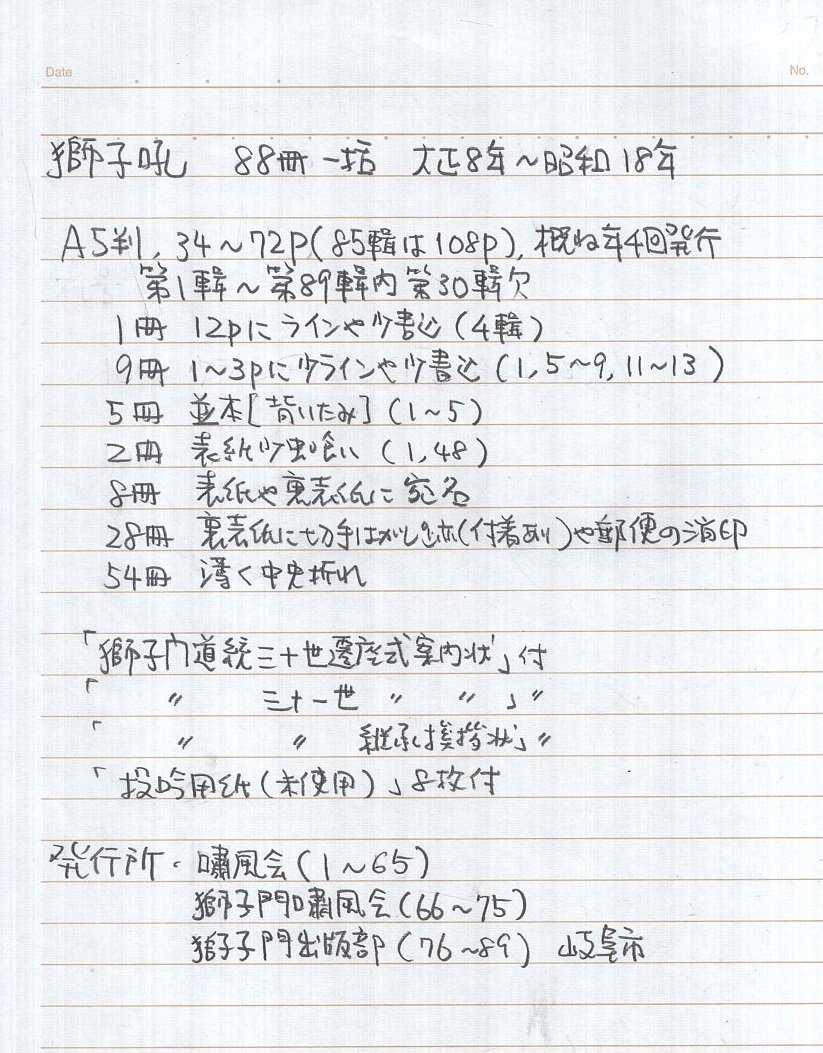 Date No.
獅子吼 88冊一括 大正8年～昭和18年
A5判, 34～72p(85輯は108p), 概ね年4回発行
第1輯～第89輯内第30輯欠
1冊 12pにラインや少書込(4輯)
9冊 1～3pに少ラインや少書込(1,5～9,11～13)
5冊 並本[背いたみ](1～5)
2冊 表紙少虫喰い(1,48)
8冊 表紙や裏表紙に宛名
28冊 裏表紙に切手はがし跡(付着あり)や郵便の消印
54冊 薄く中央折れ
「獅子門道統三十世遷座式案内状」付
「 〃 三十一世 〃 〃 」〃
「 〃 〃 継承挨拶状」〃
「投吟用紙(未使用)」8枚付
発行所・嘯風会(1～65)
獅子門嘯風会(66～75)
獅子門出版部(76～89) 岐阜市